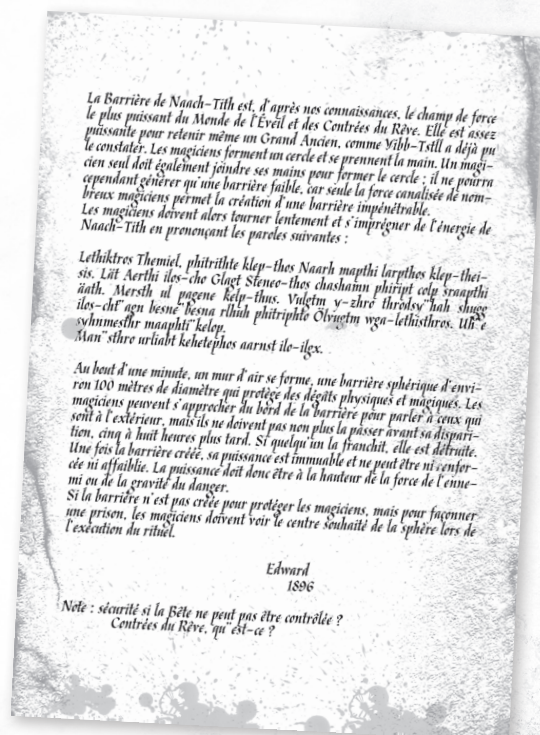 La Barrière de Naach-Tith est, d'après nos connaissances, le champ de force
le plus puissant du Monde de l'Éveil et des Contrées du Rêve. Elle est assez
puissante pour retenir même un Grand Ancien, comme Yibb-Tstll a déjà pu
le constater. Les magiciens forment un cercle et se prennent la main. Un magi-
cien seul doit également joindre ses mains pour former le cercle ; il ne pourra
cependant générer qu'une barrière faible, car seule la force canalisée de nom-
breux magiciens permet la création d'une barrière impénétrable.
Les magiciens doivent alors tourner lentement et s'imprégner de l'énergie de
Naach-Tith en prononçant les paroles suivantes :
Lethiktros Themiel, phitrithte klep-thos Naarh mapthi larpthos klep-thei-
sis. Lät Aerthi ilos-cho Glagt Steneo-thos chashamn phiript colp sraapthi
äath. Mersth ul pagene kelp-thus. Vulgtm y-zhro throdsy¨hah shugg
ilos-chf¨agn besne¨besna rlhuh phitriphte Ölvugtm wga-lethisthros. Uh¨e
syhnmesthr maaphti¨kelop.
Man¨sthro urliabt kehetephos aarnst ilo-ilgx.
Au bout d'une minute, un mur d'air se forme, une barrière sphérique d'envi-
ron 100 mètres de diamètre qui protège des dégâts physiques et magiques. Les
magiciens peuvent s'approcher du bord de la barrière pour parler à ceux qui
sont à l'extérieur, mais ils ne doivent pas non plus la passer avant sa dispari-
tion, cinq à huit heures plus tard. Si quelqu'un la franchit, elle est détruite.
Une fois la barrière créée, sa puissance est immuable et ne peut être ni renfor-
cée ni affaiblie. La puissance doit donc être à la hauteur de la force de l'enne-
mi ou de la gravité du danger.
Si la barrière n'est pas créée pour protéger les magiciens, mais pour façonner
une prison, les magiciens doivent voir le centre souhaité de la sphère lors de
l'exécution du rituel.
Edward
1896
Note : sécurité si la Bête ne peut pas être contrôlée ?
Contrées du Rêve, qu¨est-ce ?